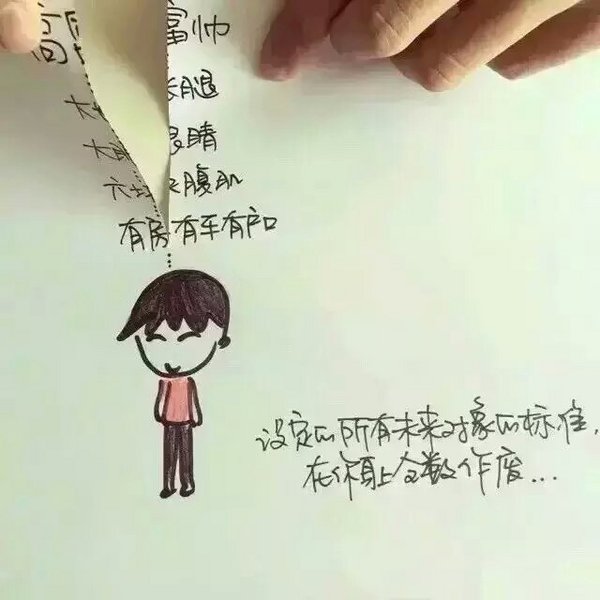 高富帅
大长腿
大眼睛
六块腹肌
有房有车有户口
设定的所有未来对象的标准,
在你身上全数作废...